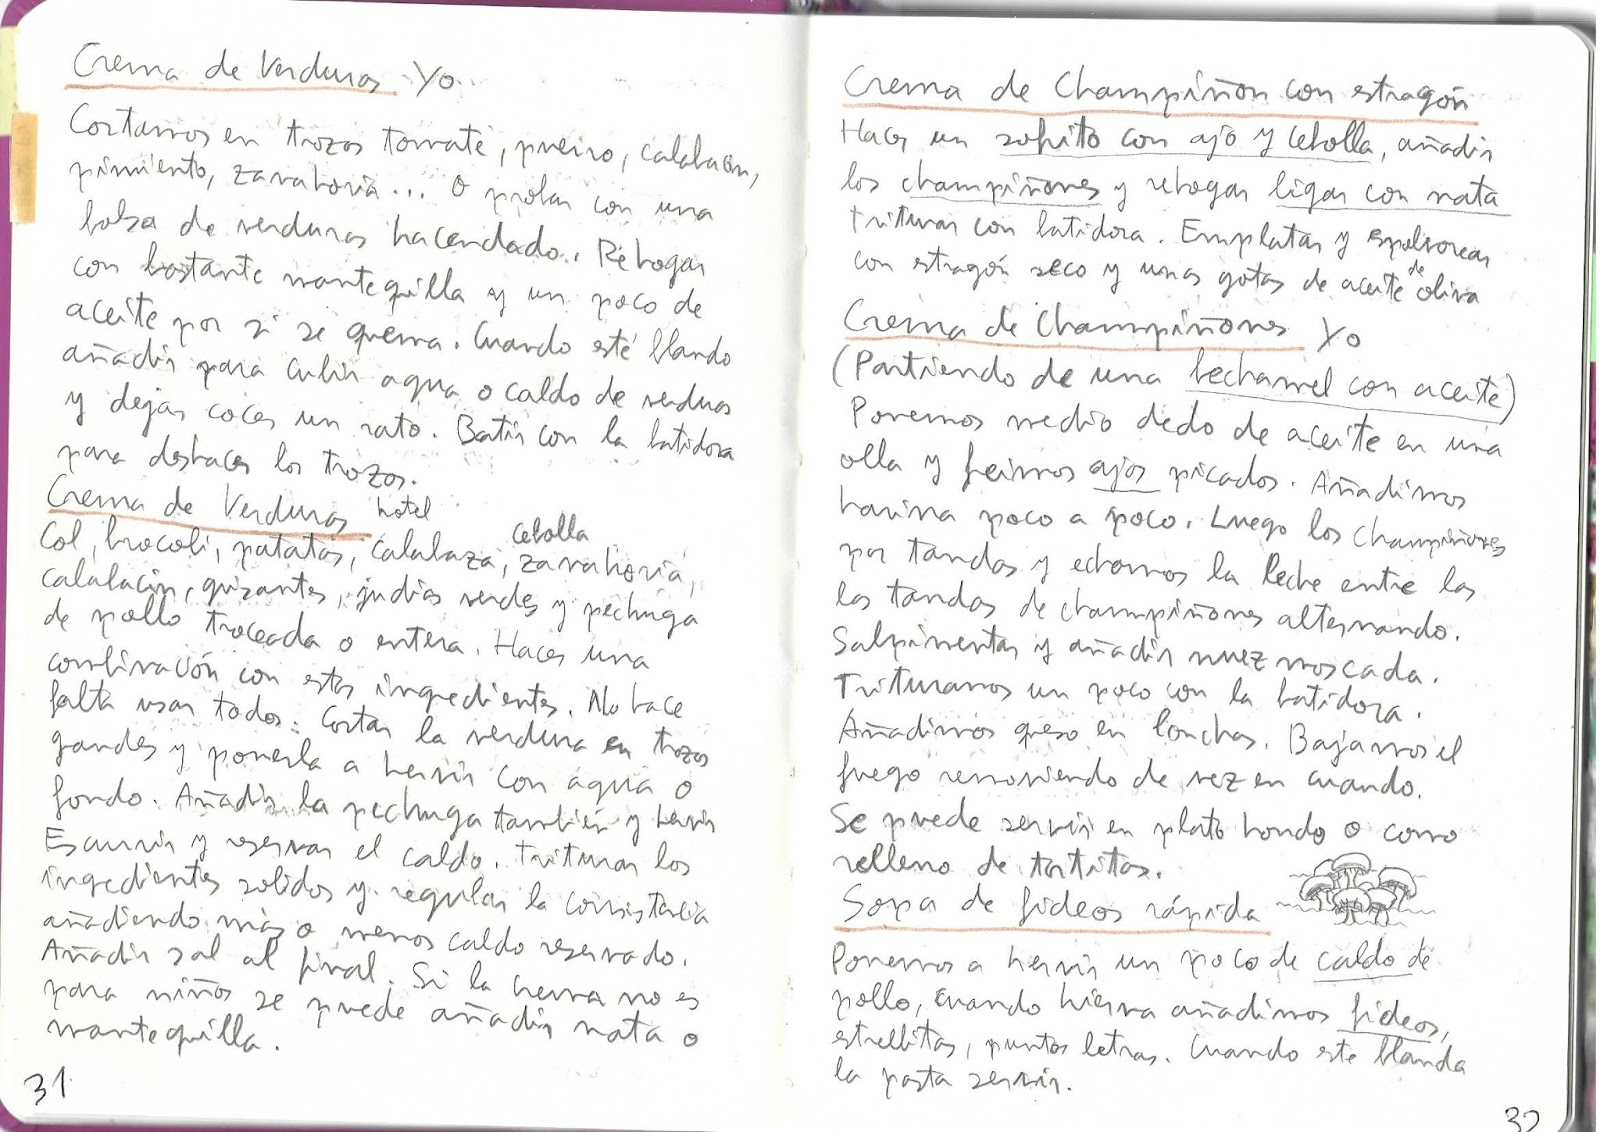 Crema de Verduras Yo
Cortamos en trozos tomate, pueiro, calabacín,
pimiento, zanahoria... O probar con una
bolsa de verduras hacendado.. Rehogar
con bastante mantequilla y un poco de
aceite por si se quema. Cuando esté blando
añadir para cubrir agua o caldo de verduras
y dejar cocer un rato. Batir con la batidora
para deshacer los trozos.
Crema de Verduras hotel
Col, brocoli, patatas, calabaza, cebolla, zanahoria,
calabacín, guisantes, judias verdes y pechuga
de pollo troceada o entera. Hacer una
combinación con estos ingredientes. No hace
falta usar todos. Cortar la verdura en trozos
gandes y ponerla a hervir con agua o
fondo. Añadir la pechuga también y hervir
Escurrir y reservar el caldo. Triturar los
ingredientes solidos y regular la consistencia
añadiendo más o menos caldo reservado.
Añadir sal al final. Si la crema no es
para niños se puede añadir nata o
mantequilla.
31
Crema de Champiñon con estragón
Hacer un sofrito con ajo y cebolla, añadir
los champiñones y rehogar ligar con nata
triturar con batidora. Emplatar y espolvorear
con estragón seco y unas gotas de aceite de oliva
Crema de Champiñones Yo
(Partiendo de una bechamel con aceite)
Ponemos medio dedo de aceite en una
olla y freimos ajos picados. Añadimos
harina poco a poco. Luego los champiñones
por tandas y echamos la leche entre las
las tandas de champiñones alternando.
Salpimentar y añadir nuez moscada.
Trituramos un poco con la batidora.
Añadimos queso en lonchas. Bajamos el
fuego removiendo de vez en cuando.
Se puede servir en plato hondo o como
relleno de tartitas.
Sopa de fideos rápida
Ponemos a hervir un poco de caldo de
pollo, cuando hierva añadimos fideos,
estrellitas, puntos letras. Cuando este blanda
la pasta servir.
32